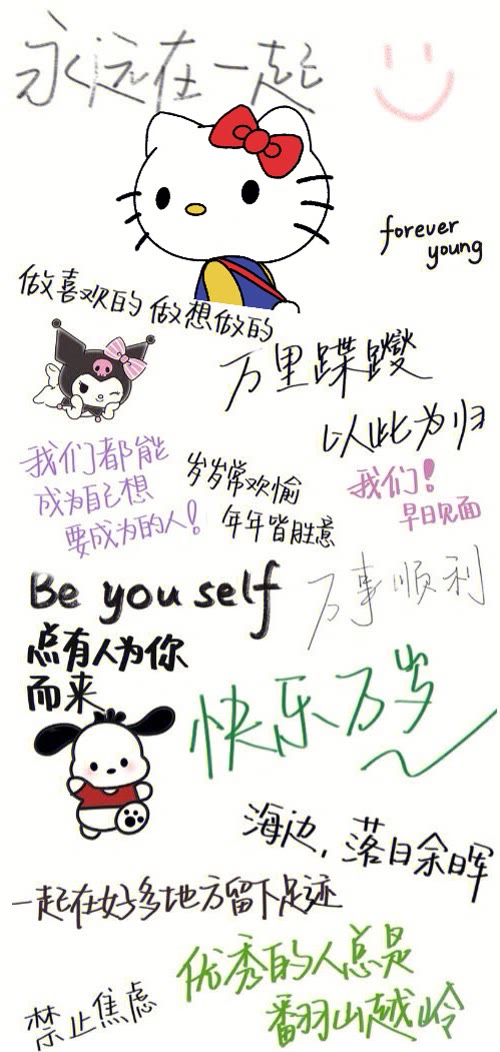 永远在一起
forever
young
做喜欢的 做想做的
万里蹀躞
以此为归
我们都能
成为自己想
要成为的人!
岁岁常欢愉
年年皆胜意
我们!
早日见面
Be you self
万事顺利
点有人为你
而来
快乐万岁
海边,落日余晖
一起在好多地方留下足迹
优秀的人总是
翻山越岭
禁止焦虑